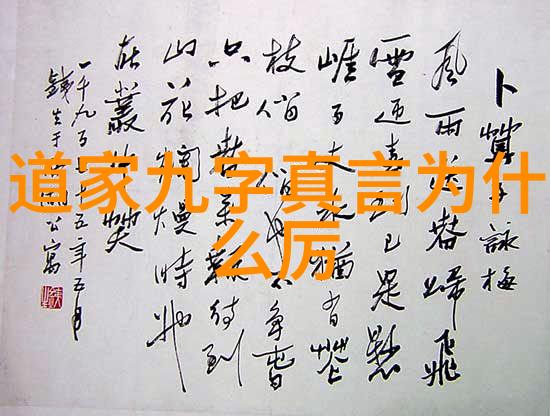 道家九字真言为什
么厉
卜算子 詠梅
風雨送春歸飛
雪迎春到已是懸
崖百丈冰猶有花
枝俏俏也不爭春
只把春來報待到
山花爛漫時她
在叢中笑
一千九百七十五年五月
公寓